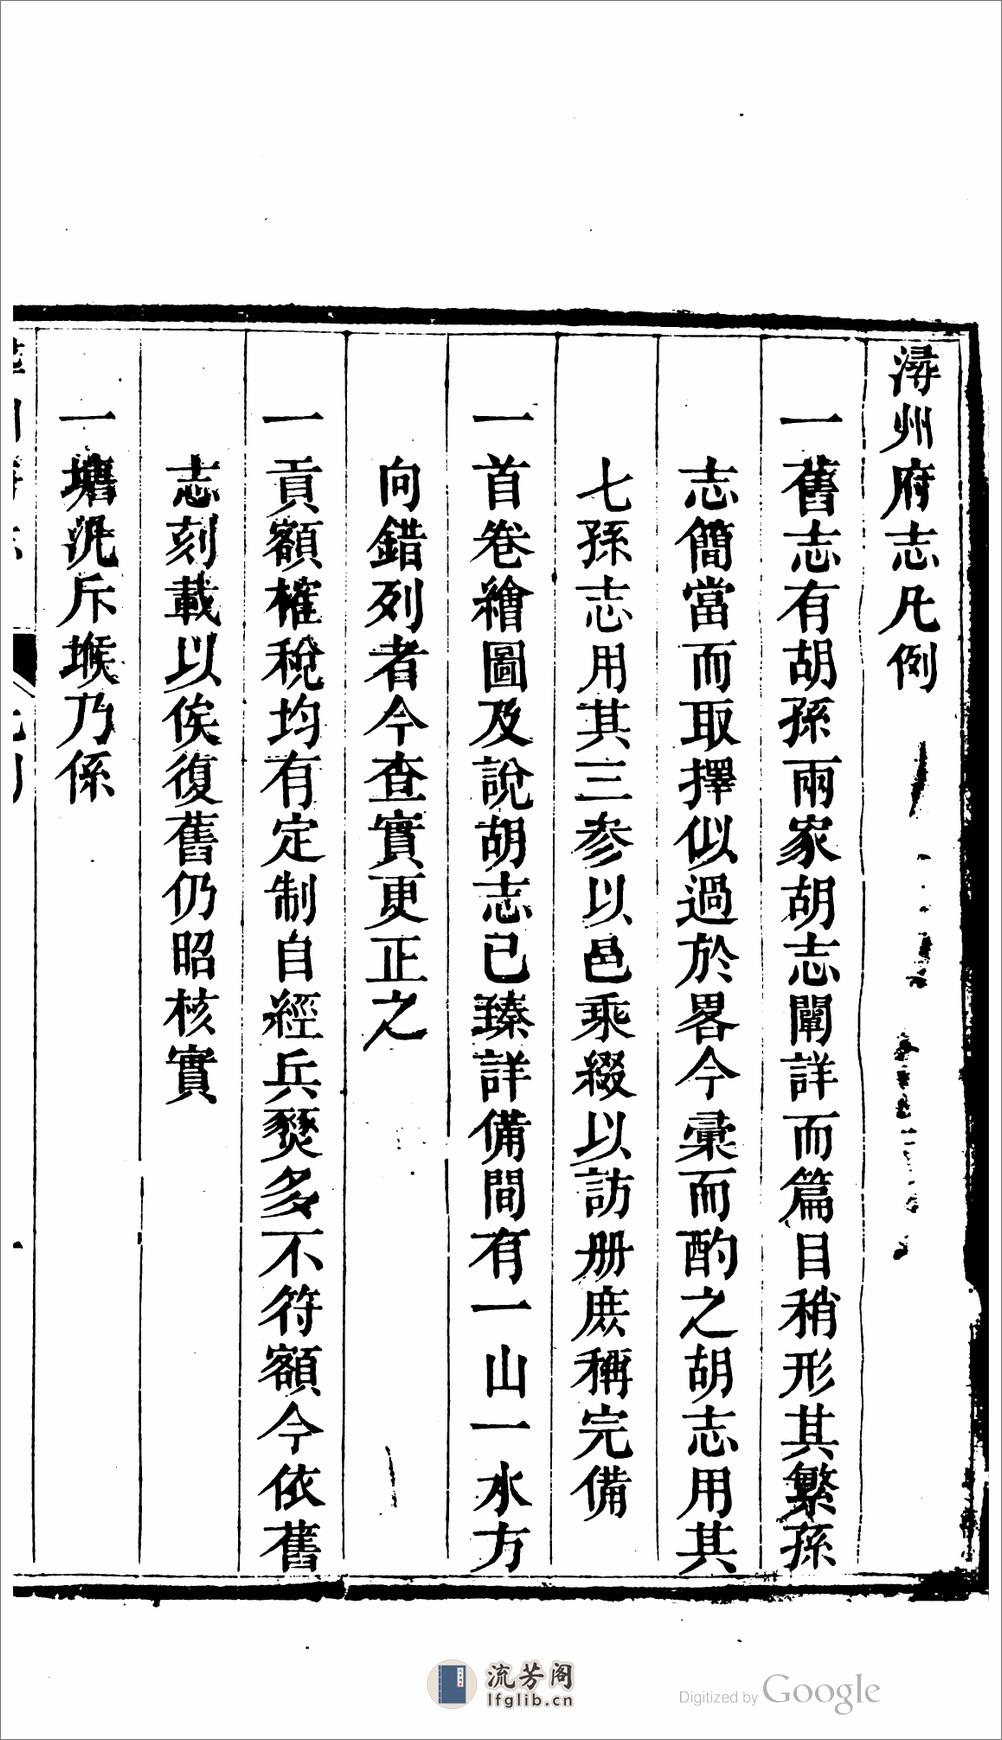 潯州府志凡例
一舊志有胡孫兩家胡志闡詳而篇目稍形其繁孫
志簡當而取擇似過於畧今彙而酌之胡志用其
七孫志用其三参以邑乘綴以訪册庶稱完備
一首卷繪圖及說胡志已臻詳備間有一山一水方
向錯列者今查實更正之
一貢額榷稅均有定制自經兵燹多不符額今依舊
志刻載以俟復舊仍昭核實
一塘汛斥堠乃係
流芳阁
lfglib.cn
Digitized by Google